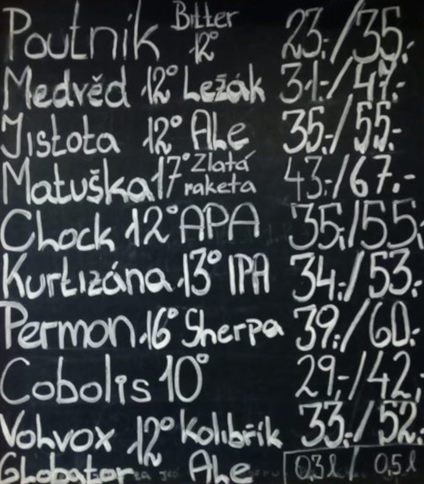 Poutník Bitter 12° 23.-/35.-
Medvěd 12° Ležák 31.-/47.-
Jistota 12° Ale 35.-/55.-
Matuška 17° Zlatá raketa 43.-/67.-
Chock 12° APA 35.-/55.-
Kurtizána 13° IPA 34.-/53.-
Permon 16° Sherpa 39.-/60.-
Cobolis 10° 29.-/42.-
Volvox 12° Kolibřík 33.-/52.-
Globator Ale 0,3 l / 0,5 l